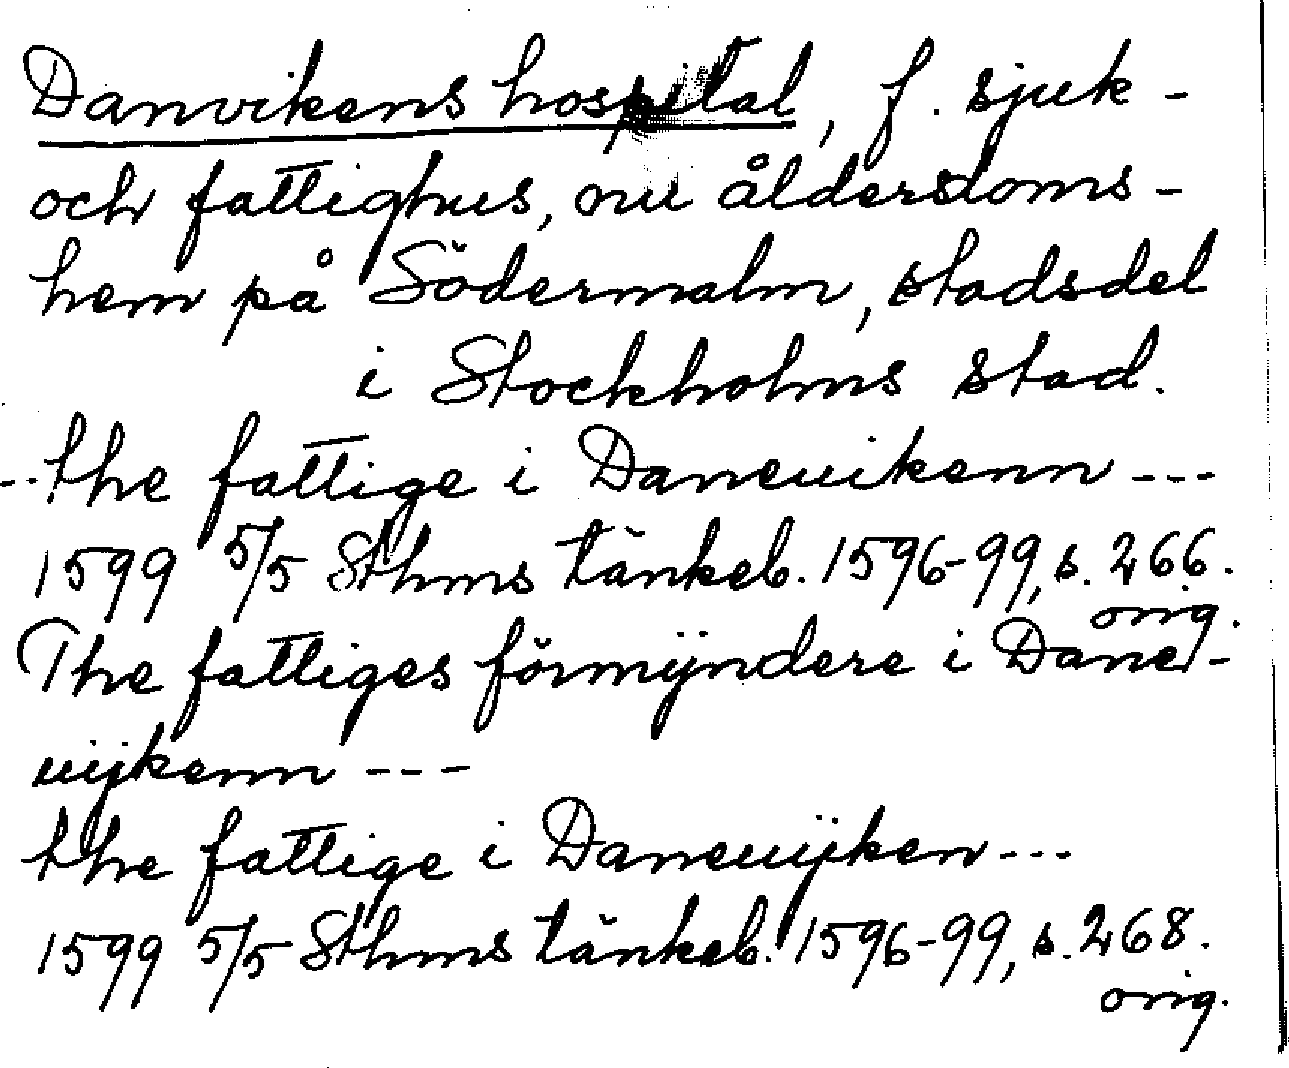 Danvikens hospital, f. sjuk-
och fattighus, nu ålderdoms-
hem på Södermalm, stadsdel
i Stockholms stad.
--- the fattige i Daneuikenn ---
1599 5/5 Sthms tänkeb. 1596-99, s. 266.
orig.
The fattiges förmÿndere i Dane-
uijkenn ---
the fattige i Daneuijken ---
1599 5/5 Sthms tänkeb. 1596-99, s. 268.
orig.